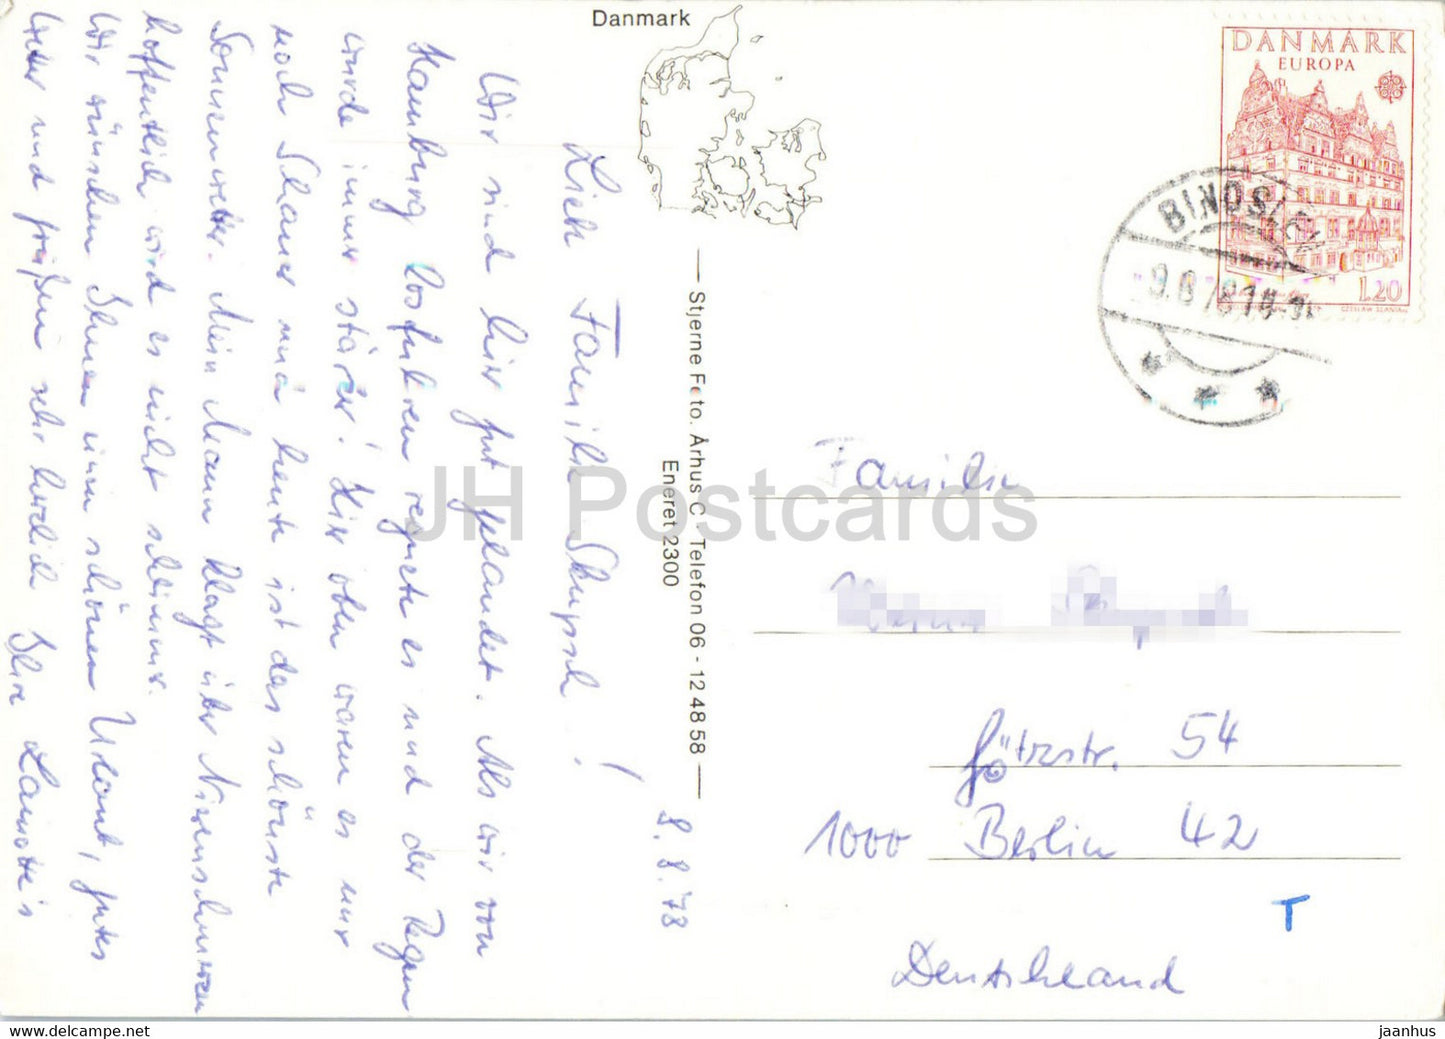 Danmark
DANMARK
EUROPA
1.20
CZESLAW SLANIA
BINDSLEV
9.8.78 14
Stjerne Foto. Århus C - Telefon 06 - 12 48 58
Eneret 2300
8.8.78
Liebe Familie Skupsch!
Wir sind hier gut gelandet. Als wir von
Hamburg losfuhren regnete es und der Regen
wurde immer stärker! Hier oben waren es nur
noch Schauer und heute ist das schönste
Sonnenwetter. Mein Mann klagt über Nierenschmerzen
hoffentlich wird es nicht schlimmer.
Wir wünschen Ihnen einen schönen Urlaub, gutes
Wetter und grüßen sehr herzlich Ihre Lamotte's
Familie
Götzstr. 54
1000 Berlin 42
T
Deutschland
JH Postcards
www.delcampe.net
jaanhus